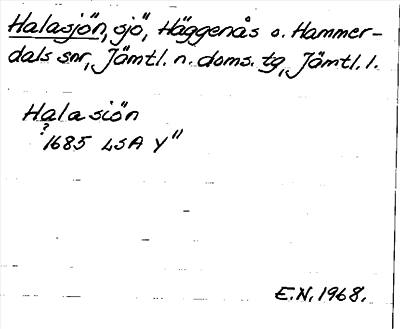 Halasjön, sjö, Häggenås o. Hammer-
dals snr, Jämtl. n. doms. tg, Jämtl. l.
Halasiön
? 1685 LSA Y"
E.N. 1968.